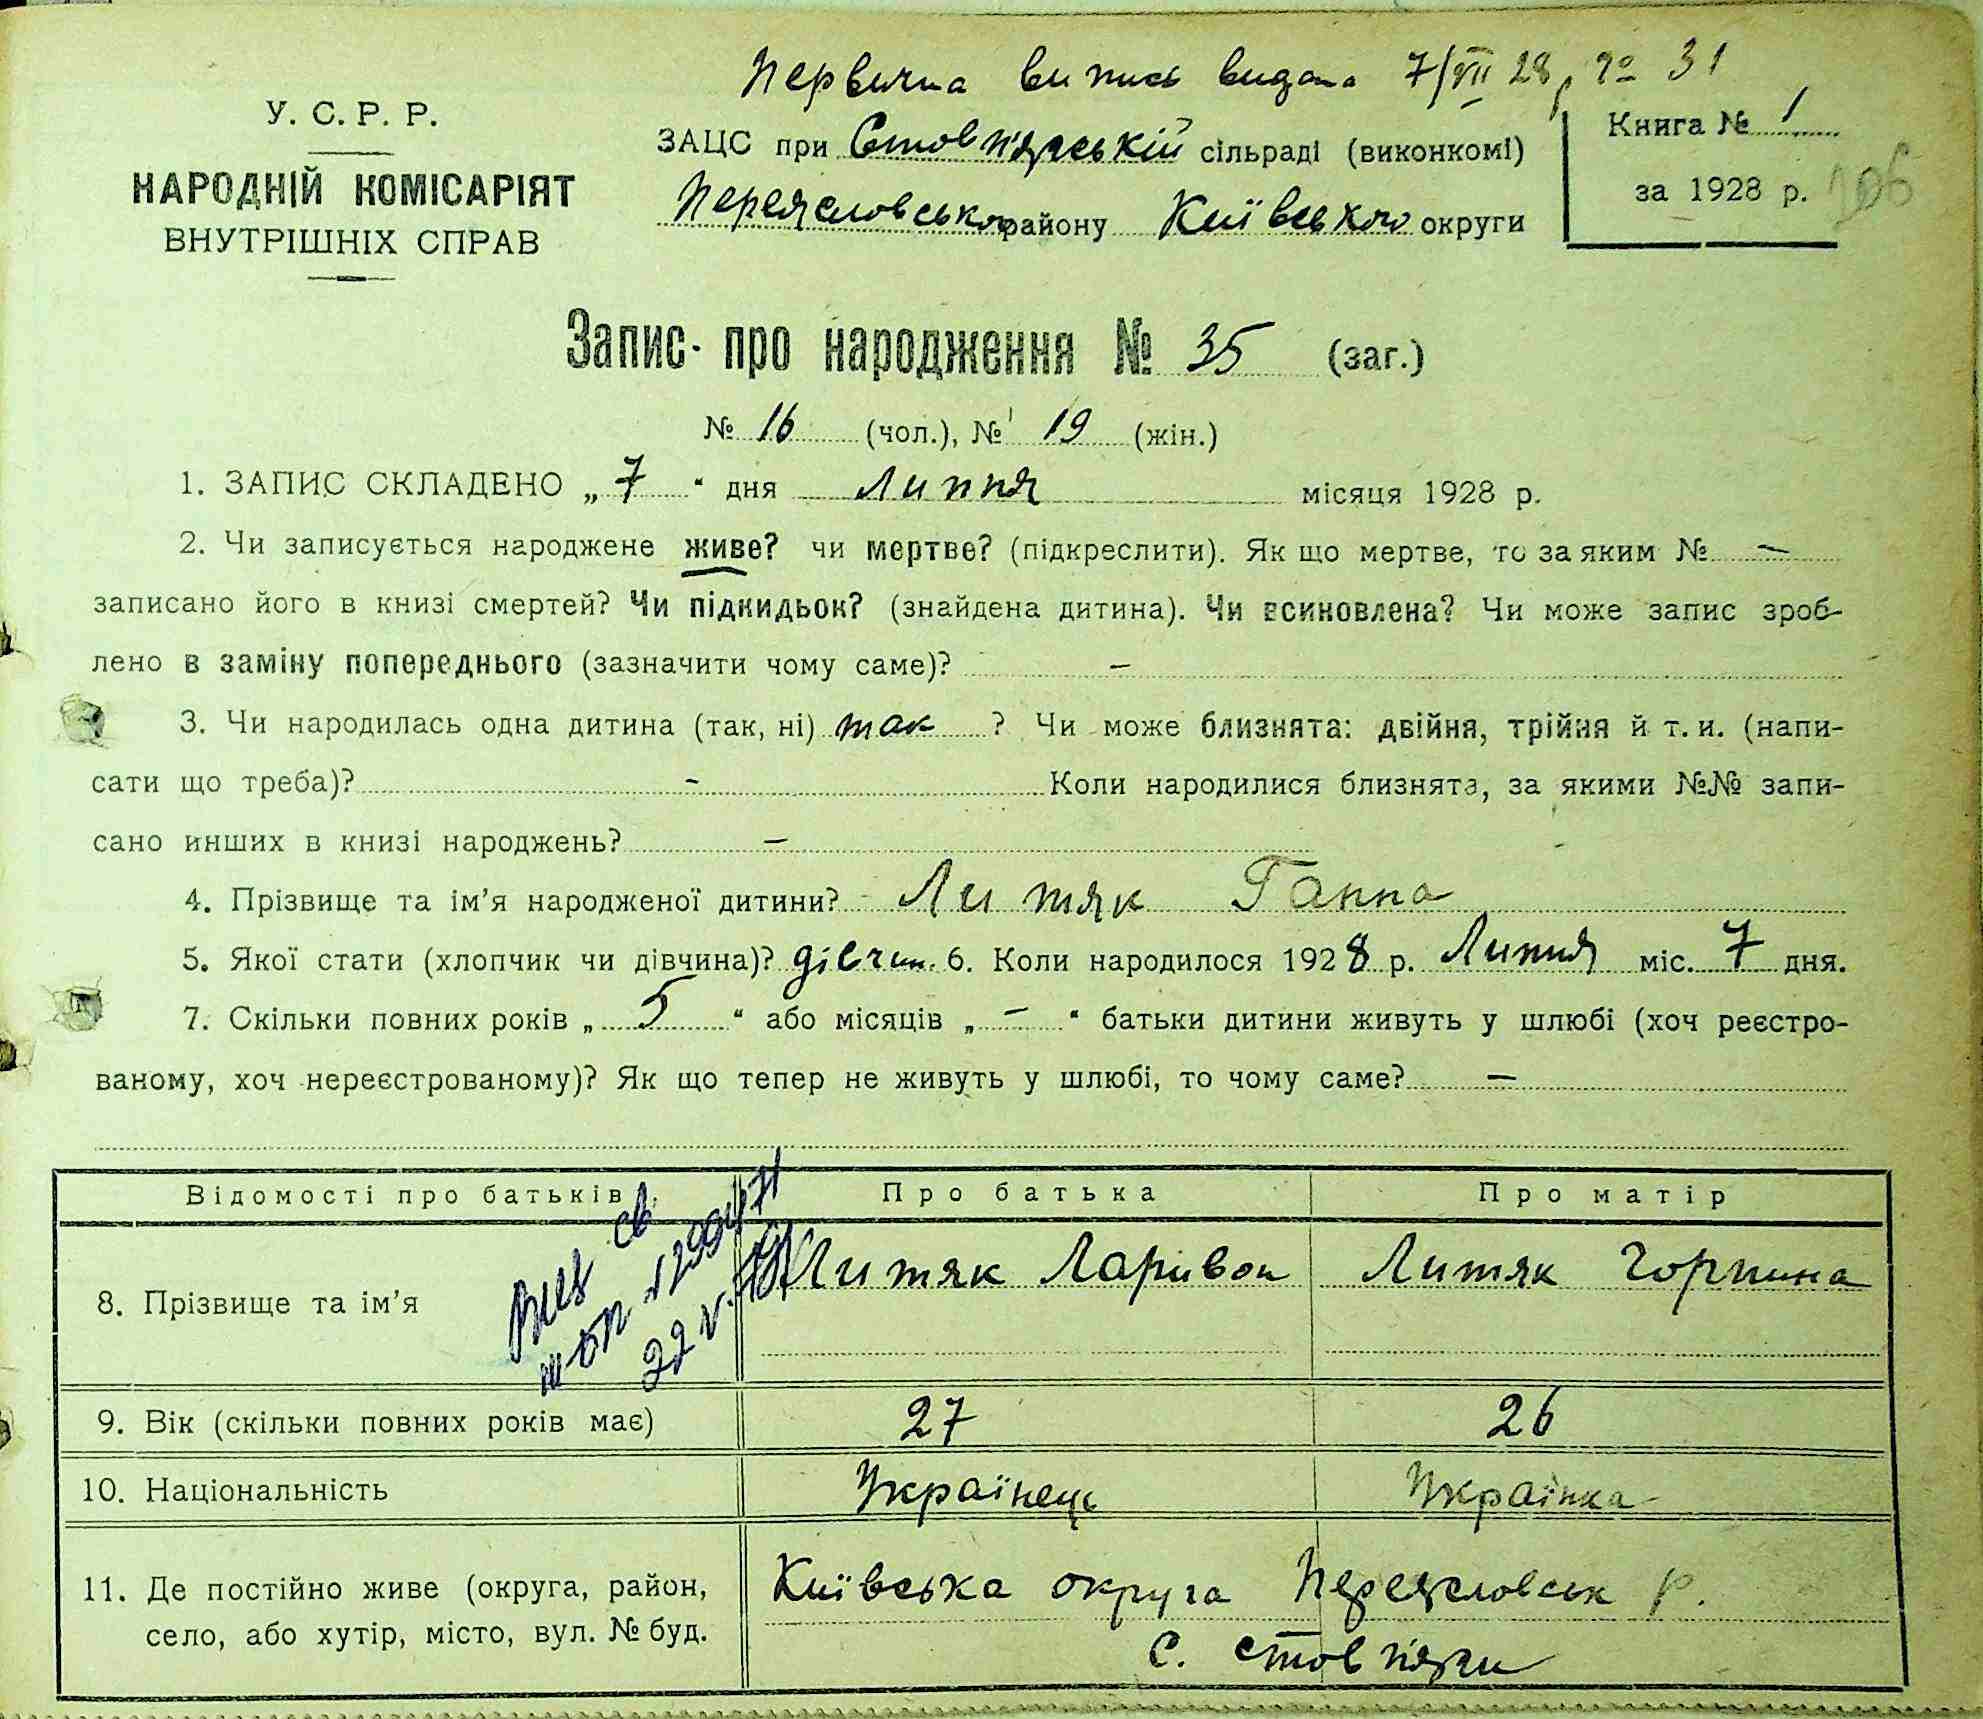 Первична випись видана 7/VII 28, № 31
У. С. Р. Р.
НАРОДНІЙ КОМІСАРІЯТ
ВНУТРІШНІХ СПРАВ
ЗАЦС при Стовп'язській сільраді (виконкомі)
Переяславського району Київського округи
Книга № 1
за 1928 р.
106
Запис про народження № 35 (заг.)
№ 16 (чол.), № 19 (жін.)
1. ЗАПИС СКЛАДЕНО „ 7 “ дня Липня місяця 1928 р.
2. Чи записується народжене живе? чи мертве? (підкреслити). Як що мертве, то за яким № —
записано його в книзі смертей? Чи підкидьок? (знайдена дитина). Чи всиновлена? Чи може запис зроб-
лено в заміну попереднього (зазначити чому саме)? —
3. Чи народилась одна дитина (так, ні) так ? Чи може близнята: двійня, трійня й т. и. (напи-
сати що треба)? - Коли народилися близнята, за якими №№ запи-
сано инших в книзі народжень? —
4. Прізвище та ім’я народженої дитини? Литяк Ганна
5. Якої стати (хлопчик чи дівчина)? дівчин. 6. Коли народилося 1928 р. Липня міс. 7 дня.
7. Скільки повних років „ 5 “ або місяців „ — “ батьки дитини живуть у шлюбі (хоч реєстро-
ваному, хоч нереєстрованому)? Як що тепер не живуть у шлюбі, то чому саме? —
Відомості про батьків Про батька Про матір
8. Прізвище та ім’я Литяк Ларивон Литяк Горпина
9. Вік (скільки повних років має) 27 26
10. Національність Українець Українка
11. Де постійно живе (округа, район, Київська округа Переяславськ р.
село, або хутір, місто, вул. № буд. с. Стовп'яги